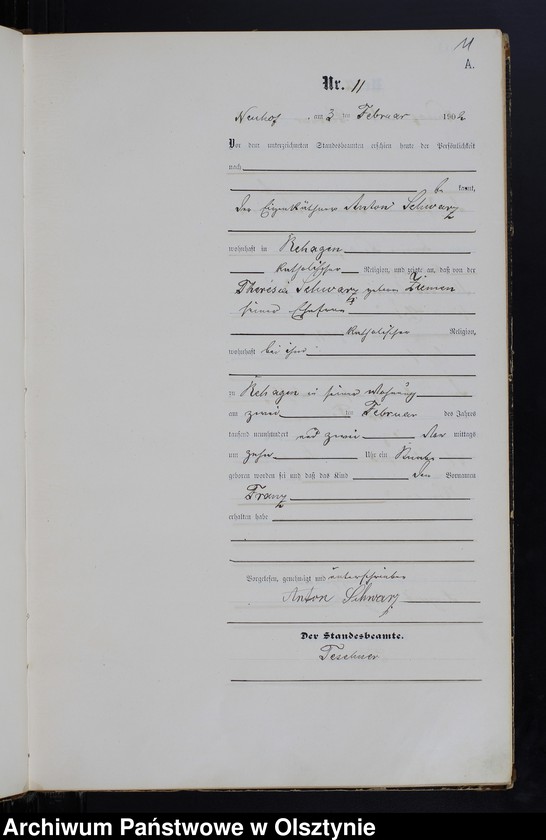 11
A.
Nr. 11
Neuhof, am 3 ten Februar 1902
Vor dem unterzeichneten Standesbeamten erschien heute, der Persönlichkeit
nach
be kannt,
der Eigenkäthner Anton Schwarz
wohnhaft in Rehagen
katholischer Religion, und zeigte an, daß von der
Theresia Schwarz geborn Ziemen
seiner Ehefrau
katholischer Religion,
wohnhaft bei ihm
zu Rehagen in seiner Wohnung
am zwei ten Februar des Jahres
tausend neunhundert und zwei Vor mittags
um zehn Uhr ein Knabe
geboren worden sei und daß das Kind den Vornamen
Franz
erhalten habe
Vorgelesen, genehmigt und unterschrieben
Anton Schwarz
Der Standesbeamte.
Teschner
Archiwum Państwowe w Olsztynie